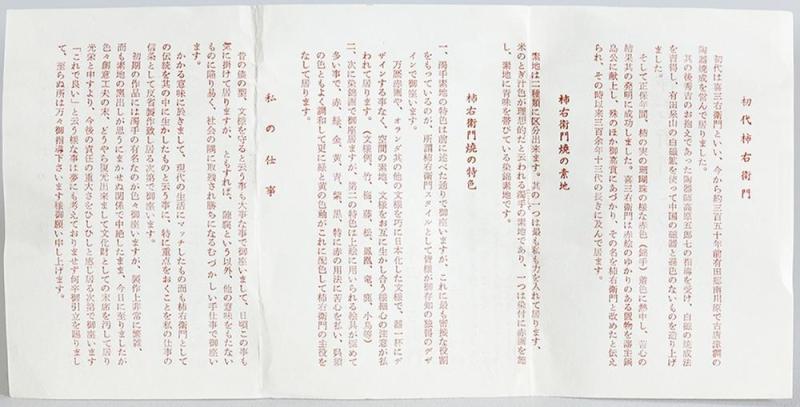 初代柿右衛門
初代は喜三右衛門といい、今から約三百五十年前有田郷南川原で古唐津調の
陶器焼成を営んで居りました。
其の後秀吉のお抱えであった陶器師高原五郎七の指導を受け、白磁の焼成法
を習得し、有田泉山の白磁鉱を使って中国の磁器と遜色のないものを造り上げ
ました。
そして正保年間、柿の実の珊瑚珠の様な赤色(錦手)着色に熱中し、苦心の
結果其の発明に成功しました。喜三右衛門は赤絵のゆかりのある置物を藩主鍋
島公に献上し、殊のほか御嘉賞にあづかり、その名を柿右衛門と改めたと伝え
られ、その時以来三百余年十三代の長きに及んで居ります。
柿右衛門焼の素地
素地は二種類に区分出来ます。其の一つは最も私も力を入れて居ります、
米のとぎ汁色が理想的だと云われる濁手の素地であり、一つは染付に赤画を施
し、素地に青味を帯びている染錦素地です。
柿右衛門焼の特色
一、濁手素地の特色は前に述べた通りで御座いますが、これに最も密接な役割
をもっているのが、所謂柿右衛門スタイルとして皆様が御存知の独得のデザ
インで御座います。
万暦赤画や、オランダ其の他の文様を巧に日本化した文様で、器一杯にデ
ザインする事なく、空間の素地、文様をお互に生かし合う様細心の注意が払
われて居ります。(文様例、竹、梅、藤、松、鳳凰、竜、鹿、小鳥等)
二、次に染錦画で御座居ますが、第二の特色は上絵に用いられる絵具が極めて
多い事で、赤、緑、金、黄、青、紫、黒、特に赤の用法に苦心を払い、呉須
の色ともよく調和して更に緑と黄の色釉がこれに配色して柿右衛門の主役を
なして居ります。
私の仕事
昔の儘の型、文様を守ると云う事も大事な事で御座いまして、日頃この事も
気に掛けて居りますが、ともすれば、陳腐という以外、他の意味をもたない
ものに陥り易く、社会の隅に取残され勝ちになるむづかしい手仕事で御座い
ます。
かかる意味に於きまして、現代の生活にマッチしたもの而も柿右衛門として
の伝統を其の中に生かしたものと云う事に、特に重点をおくことを私の仕事の
信条として万省製作致し居る次第で御座います。
初期の作品には濁手の有名なのが色々御座いますが、製作上非常に繁雑、
而も素地の黒出しが思うにまかせぬ関係で中絶したまま、今日に至りましたが
色々創意工夫の末、どうやら復元出来まして文化財としての末席を汚して居り
光栄と申すより、今後の責任の重大さをひしひしと感じ居る次第で御座います
「これで良い」と云う様な事は夢にも考えておりませず何卒御引立を賜りまし
て、至らぬ所は万々御指導下さいます様御願い申し上げます。